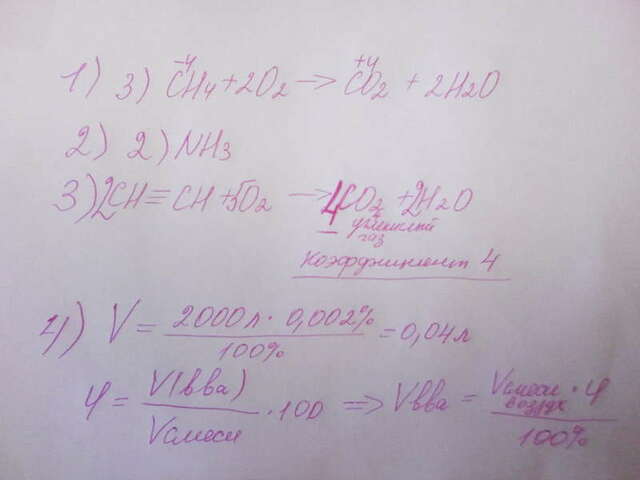 1) 3) CH₄ + 2O₂ → CO₂ + 2H₂O -4 +4
2) 2) NH₃
3) 2CH ≡ CH + 5O₂ → 4CO₂ + 2H₂O
углекислый
газ
коэффициент 4
4) V = 2000л · 0,002% / 100% = 0,04л
φ = V(вва) / Vсмеси · 100 => Vвва = Vсмеси воздух · φ / 100%